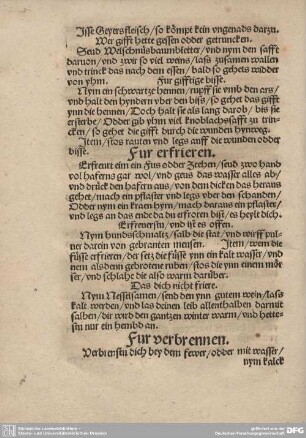 Isse Geyersfleisch/so kömpt kein vngenads darzu.
Wer gifft hette gessen odder getruncken.
Seud Welschnüsbaumbletter/vnd nym den safft
daruon/vnd zwir so viel weins/lass zusamen wallen
vnd trinck das nach dem essen/bald so gehets widder
von yhm. Für gifftige bisse.
Nym ein schwartze hennen/rupff sie vmb den ars/
vnd halt den hyndern vber den biss/so gehet das gifft
ynn die hennen/Doch halt sie als lang darob/bis sie
ersterbe/Odder gib yhm viel knoblachssafft zu trin-
cken/so gehet die gifft durch die wunden hynweg.
Item/stos rauten vnd legs auff die wunden odder
bisse.
Fur erfrieren.
Erfreurt ein ein Fus odder Zehen/seud zwo hand
vol haferns gar wol/vnd geus das wasser alles ab/
vnd drück den hafern aus/von dem dicken das heraus
gehet/mach ein pflaster vnd legs vber den schanden/
Odder nym ein kraen hyrn/mach daraus ein pflaster/
vnd legs an das ende da du erfroren bist/es heylt dich.
Erfreurstu/vnd ist es offen.
Nym hundsschmaltz/salb die stat/vnd wirff pul-
uer darein von gebranten meusen. Item/wem die
füsse erfrieren/der setz die füsse ynn ein kalt wasser/vnd
nem als denn gebrotene rüben/stos die ynn einem mör-
ser/vnd schlahe die also warm darüber.
Das dich nicht friere.
Nym Nesselsamen/send den ynn gutem wein/lass
kalt werden/vnd las deinen leib allenthalben darmit
salben/dir wird den gantzen winter warm/vnd hette-
stu nur ein hembd an.
Fur verbrennen.
Verbrenstu dich bey dem fewer/odder mit wasser/
nym kalck